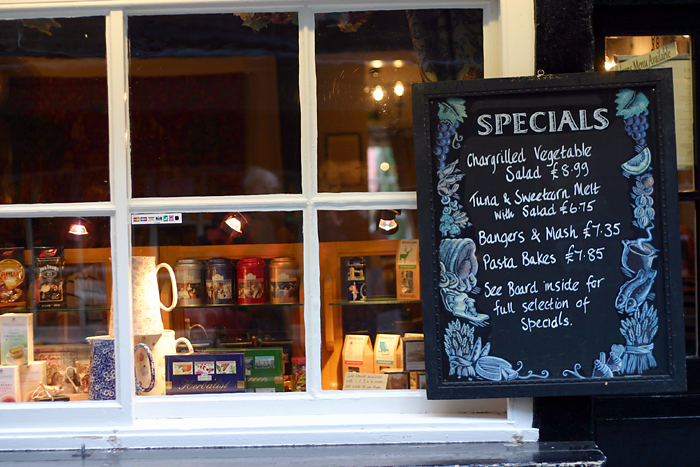 SPECIALS
Chargrilled Vegetable
Salad £8.99
Tuna & Sweetcorn Melt
with Salad £6.75
Bangers & Mash £7.35
Pasta Bakes £7.85
See Board inside for
full selection of
Specials.
Menu Available